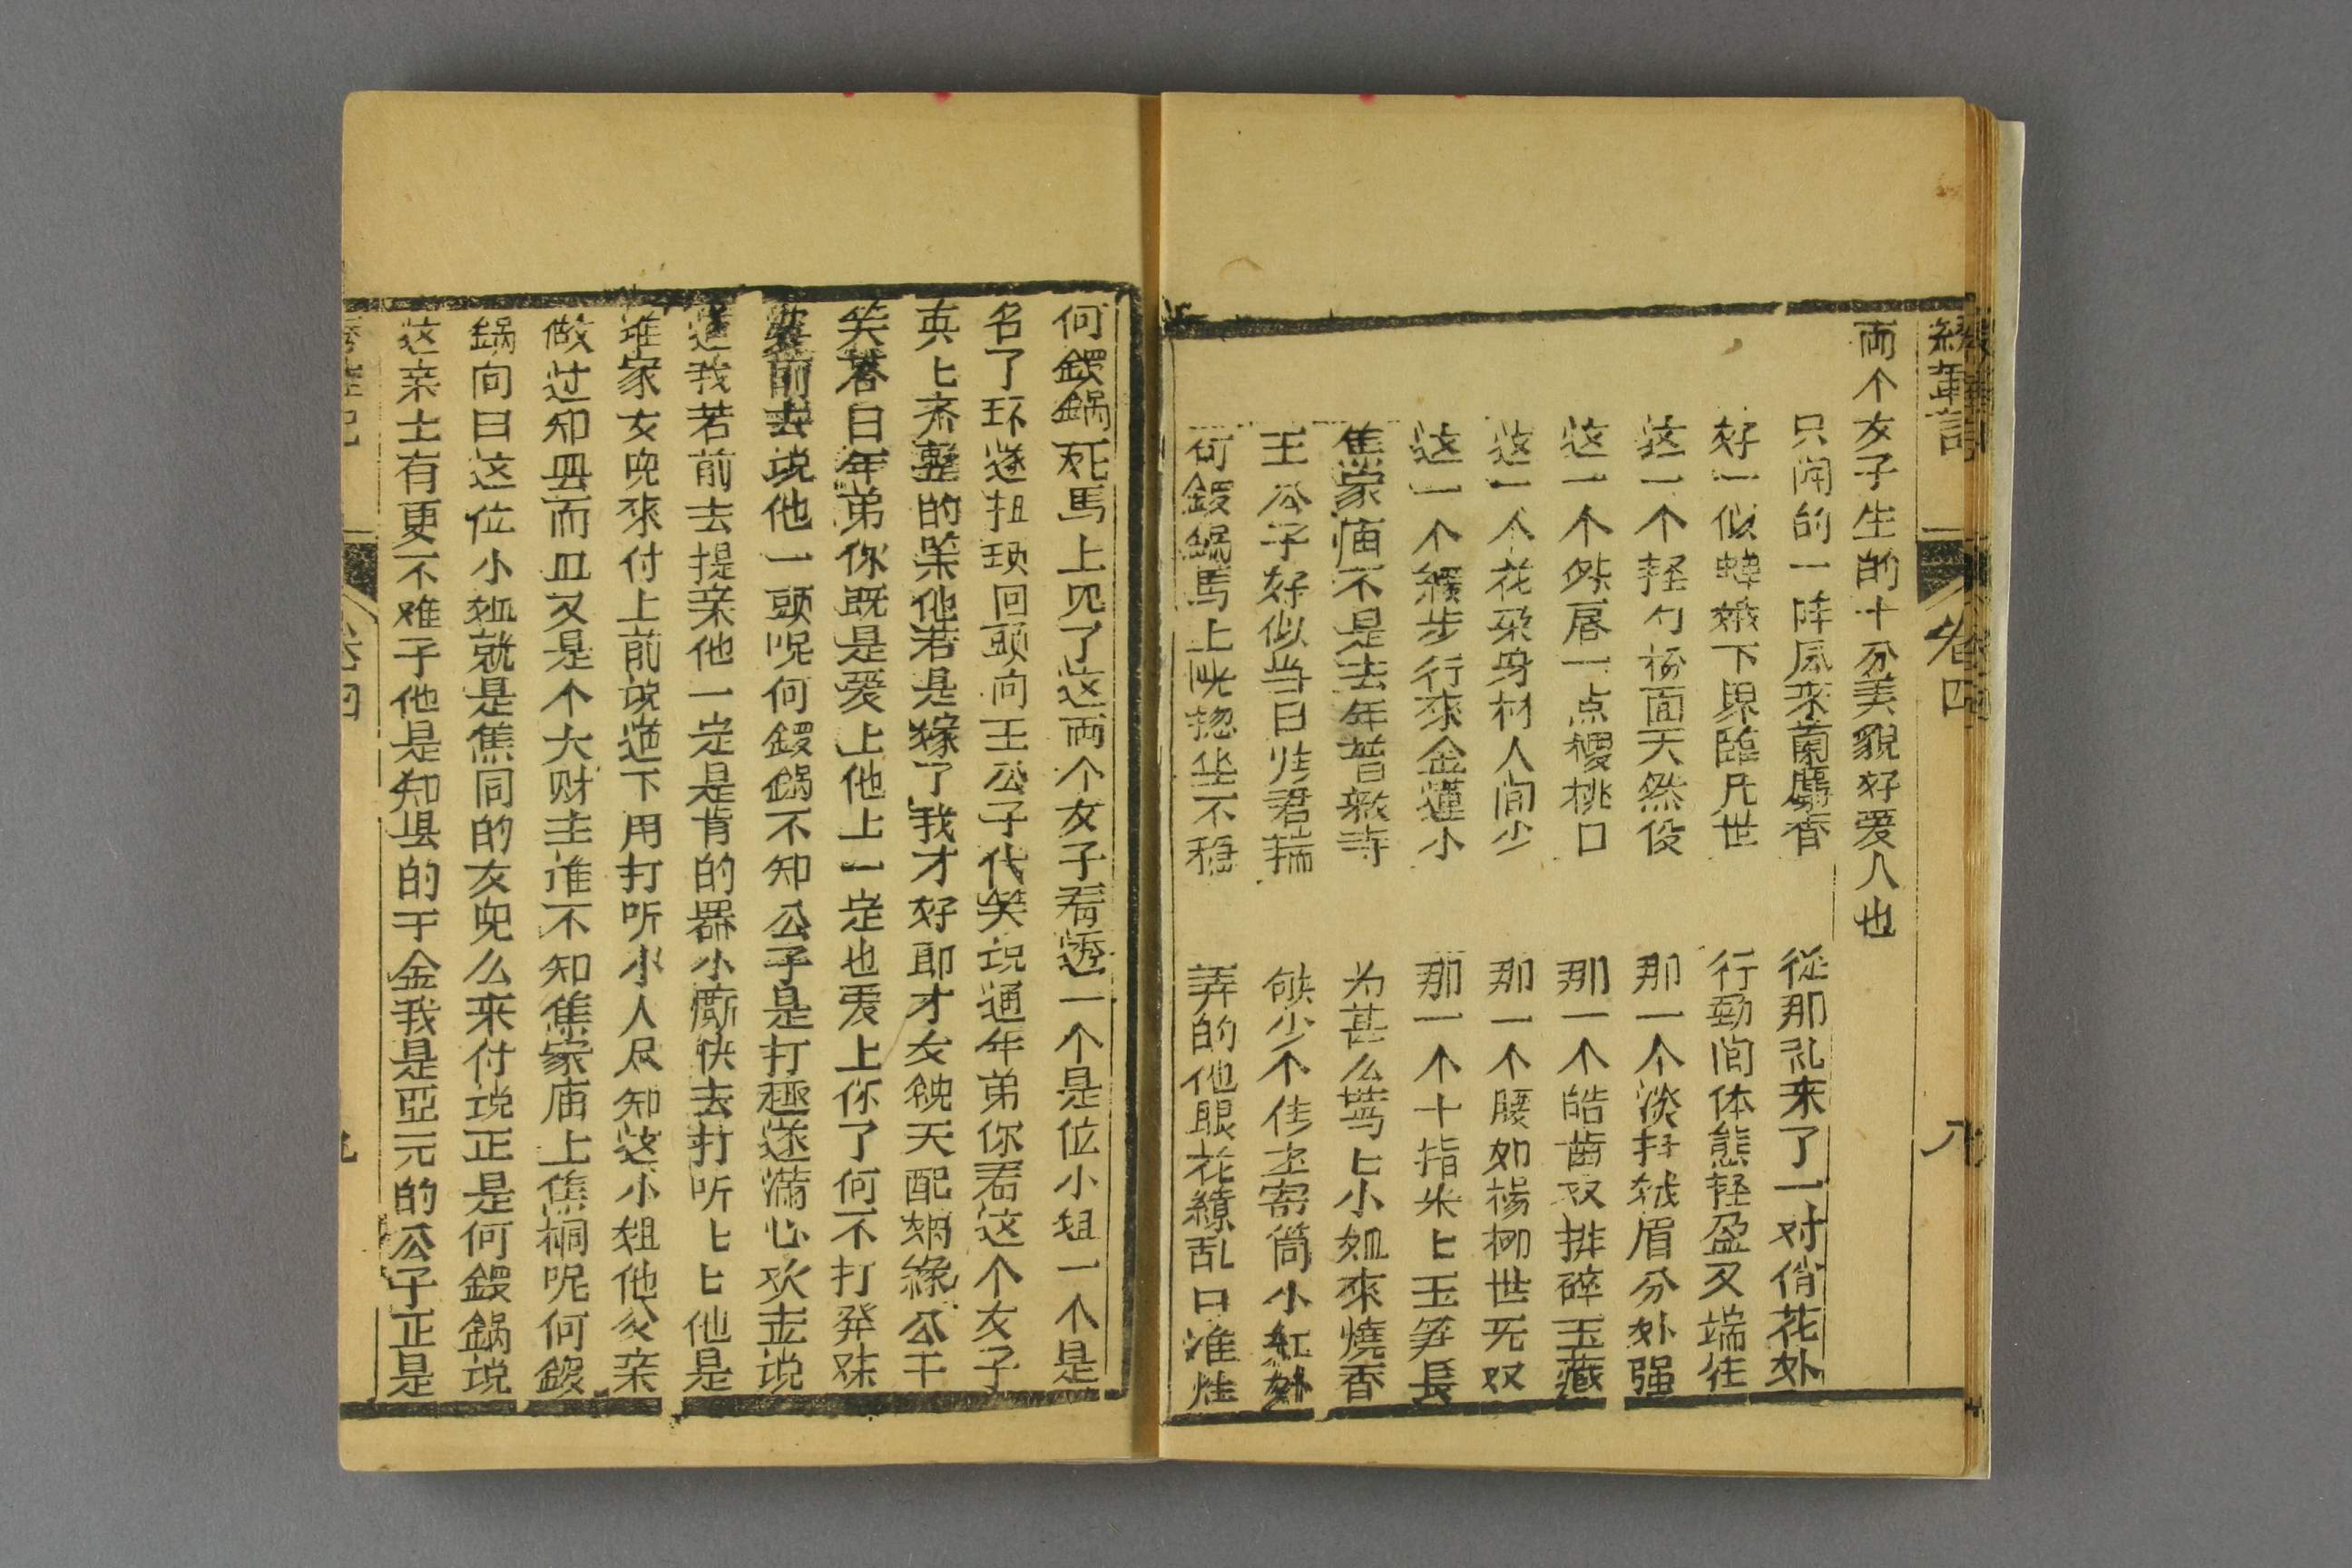 卷四
八
両个女子生的十分美貌好爱人也
只闻的一阵风来蘭麝香
從那礼来了一对俏花外
好一似嫦娥下界臨凡世
行動间体態轻盈又端
这一个轻勻粉面天然俊
那一个淡扫蛾眉分外强
这一个唇一点桃口
那一个皓齒双排碎玉藏
这一个花朶身材人间少
那一个腰如楊柳世无双
这一个缓步行來金蓮小
那一个十指米ヒ玉笋長
焦家庙不是去年普救寺
为甚么莺ヒ小姐來燒香
王公子好似当日张君瑞
候少个传寄简小紅
何鍰鍋馬上恍惚坐不穩
弄的他眼花繚乱口准
何鍰鍋死馬上见了这両个女子看一个是位小姐一个是
名了环遂扭项回頭向王公子代笑说通年弟你看这个女子
真ヒ齐整的若是嫁了我才好耶才女貌天配姻緣公干
笑答曰年弟你既是爱上他上一定也爱上你了何不打發
前去说他一頭呢何鍰鍋不知公子是打趣遂滿心欢去说
道我若前去提亲他一定是肯的小廝快去打听ヒヒ他是
谁家女児來付上前说道下用打听小人尽知这小姐他父亲
做过知县而且又是个大财主谁不知焦家庙上焦桐呢何鍰
鍋向曰这位小姐就是焦同的女児么来付说正是何鍰鍋说
这亲士有更不难于他是知县的千金我是亞元的公子正是
卷四